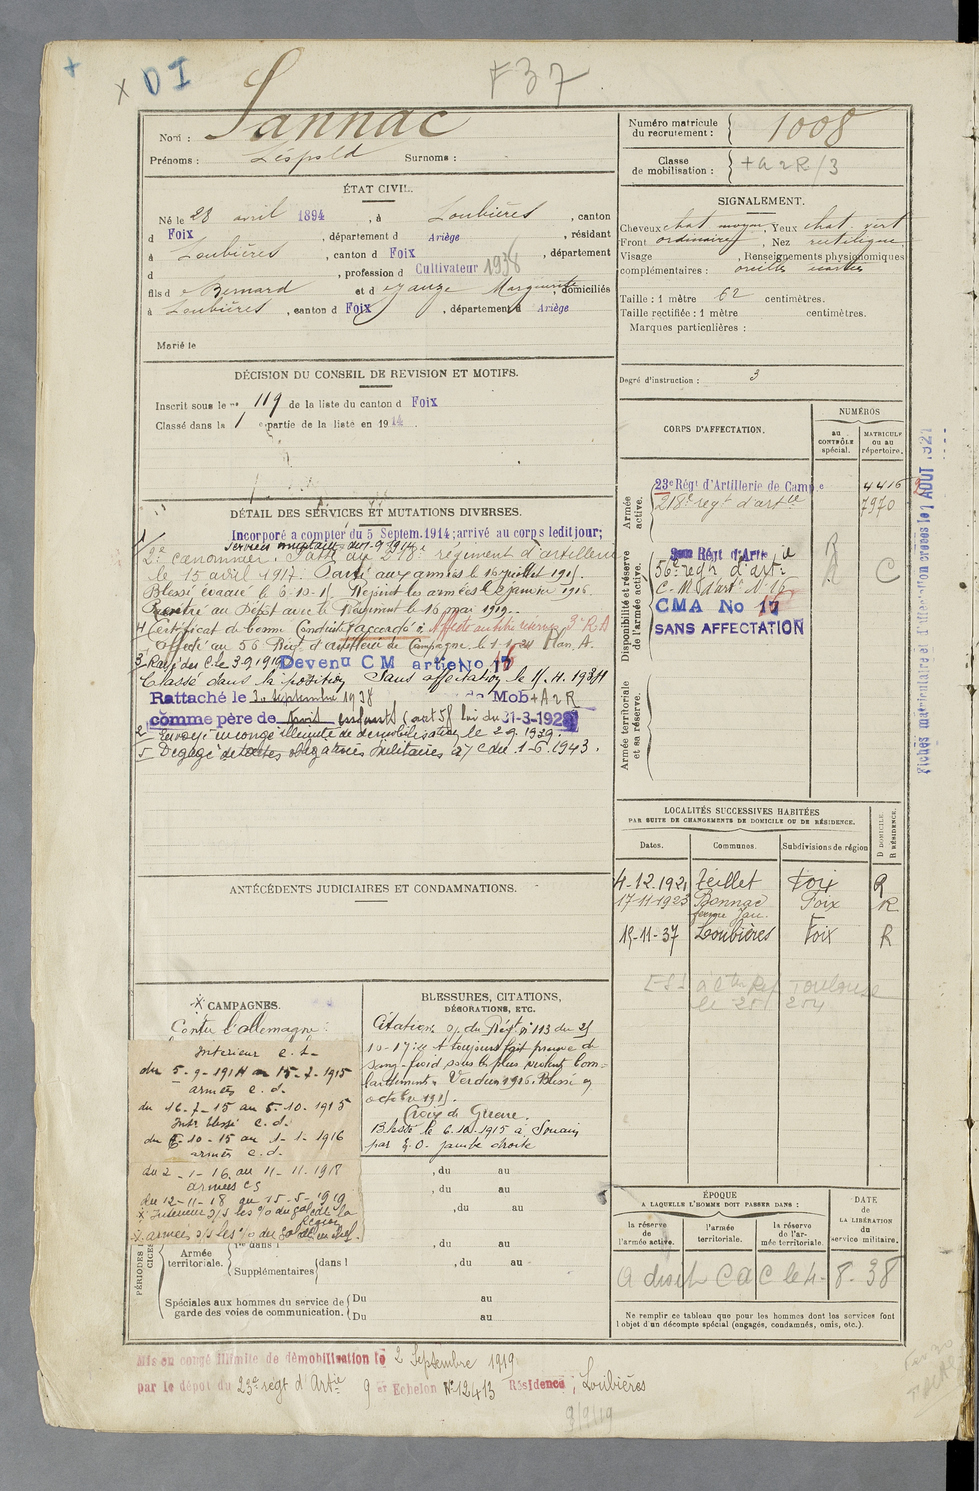 DI
F37
Nom : Sannac
Prénoms : Léopold Surnoms :
Numéro matricule du recrutement : 1008
Classe de mobilisation : +A2R/3
ÉTAT CIVIL.
Né le 28 avril 1894, à Loubières, canton
d Foix, département d Ariège, résidant
à Loubières, canton d Foix, département
d , profession d Cultivateur 1938
fils de Bernard et d eyauze Marguerite, domiciliés
à Loubières, canton d Foix, département d Ariège
Marié le
SIGNALEMENT.
Cheveux chat. moyen, Yeux chat. vert
Front ordinaire, Nez rectiligne
Visage , Renseignements physionomiques
complémentaires : oreilles
Taille : 1 mètre 62 centimètres.
Taille rectifiée : 1 mètre centimètres.
Marques particulières :
Degré d'instruction : 3
DÉCISION DU CONSEIL DE REVISION ET MOTIFS.
Inscrit sous le n° 119 de la liste du canton d Foix
Classé dans la 1e partie de la liste en 1914.
DÉTAIL DES SERVICES ET MUTATIONS DIVERSES.
Incorporé à compter du 5 Septem. 1914; arrivé au corps ledit jour;
2e canonnier. Passé au 218e régiment d'artillerie
le 15 avril 1917. Parti aux armées le 16 juillet 1915.
Blessé évacué le 6-10-15. Rejoint les armées le 2 janvier 1916.
Rentré au Dépôt avec le Régiment le 16 mai 1919.
Certificat de bonne Conduite "accordé"
Affecté au 56 Régt d'artillerie de Campagne le 1.1.24 Plan A.
3 Rayé des C. le 3-9-1919 Devenu CM artie No 17
Classé dans la position Sans affectation le 11.4.1934
Rattaché le 30 Septembre 1938 Mob +A2R
comme père de trois enfants (art 58 loi du 31-3-1928)
2 Envoyé en congé illimité de démobilisation le 2.9.1919.
5 Dégagé de toutes obligations militaires à/c du 1-6.1943.
CORPS D'AFFECTATION.
NUMÉROS
au CONTRÔLE spécial.
MATRICULE ou au répertoire.
Armée active.
23e Régt d'Artillerie de Camp.e 4416
218e regt d'artie 7970
Disponibilité et réserve de l'armée active.
56e regt d'artie C
C. M. d'artie N° 16
CMA No 17
SANS AFFECTATION
Armée territoriale et sa réserve.
Fiches matriculaire et d'affectation créées le 1 AOUT 1921
LOCALITÉS SUCCESSIVES HABITÉES
PAR SUITE DE CHANGEMENTS DE DOMICILE OU DE RÉSIDENCE.
Dates. Communes. Subdivisions de région D DOMICILE. R RÉSIDENCE.
4-12.1921 Zeillet Foix R
17-11-1923 Bonnac Foix R
15-11-37 Loubières Foix R
Toulouse
ANTÉCÉDENTS JUDICIAIRES ET CONDAMNATIONS.
CAMPAGNES.
Contre l'allemagne :
Interieur c. s.
du 5-9-1914 au 15-7-1915
armées c. d.
du 16-7-15 au 5-10-1915
Intr blessé c. d.
du 6-10-15 au 1-1-1916
armées c. d.
du 2-1-16 au 11-11-1918
armées CS
du 12-11-18 au 15-5-1919
BLESSURES, CITATIONS, DÉCORATIONS, ETC.
Citation o/. du Régt n° 113 du 25
10-17 : "A toujours fait preuve de
sang-froid sous les plus violents bom-
bardements. Verdun 1916. Blessé en
octobre 1915.
Croix de Guerre.
Blessé le 6.10.1915 à Souain
par E.O. jambe droite
, du au
, du au
, du au
, du au
, du au
PÉRIODES
Armée territoriale.
Supplémentaires dans l
Spéciales aux hommes du service de garde des voies de communication.
Du au
Du au
ÉPOQUE
A LAQUELLE L'HOMME DOIT PASSER DANS :
la réserve de l'armée active.
l'armée territoriale.
la réserve de l'armée territoriale.
DATE DE LA LIBÉRATION du service militaire.
A droit CAC le 4-8-38
Ne remplir ce tableau que pour les hommes dont les services font l'objet d'un décompte spécial (engagés, condamnés, omis, etc.).
Mis en congé illimité de démobilisation le 2 Septembre 1919
par le dépôt du 23e régt d'Artie 9er Echelon N° 12413 Résidence : Loubières